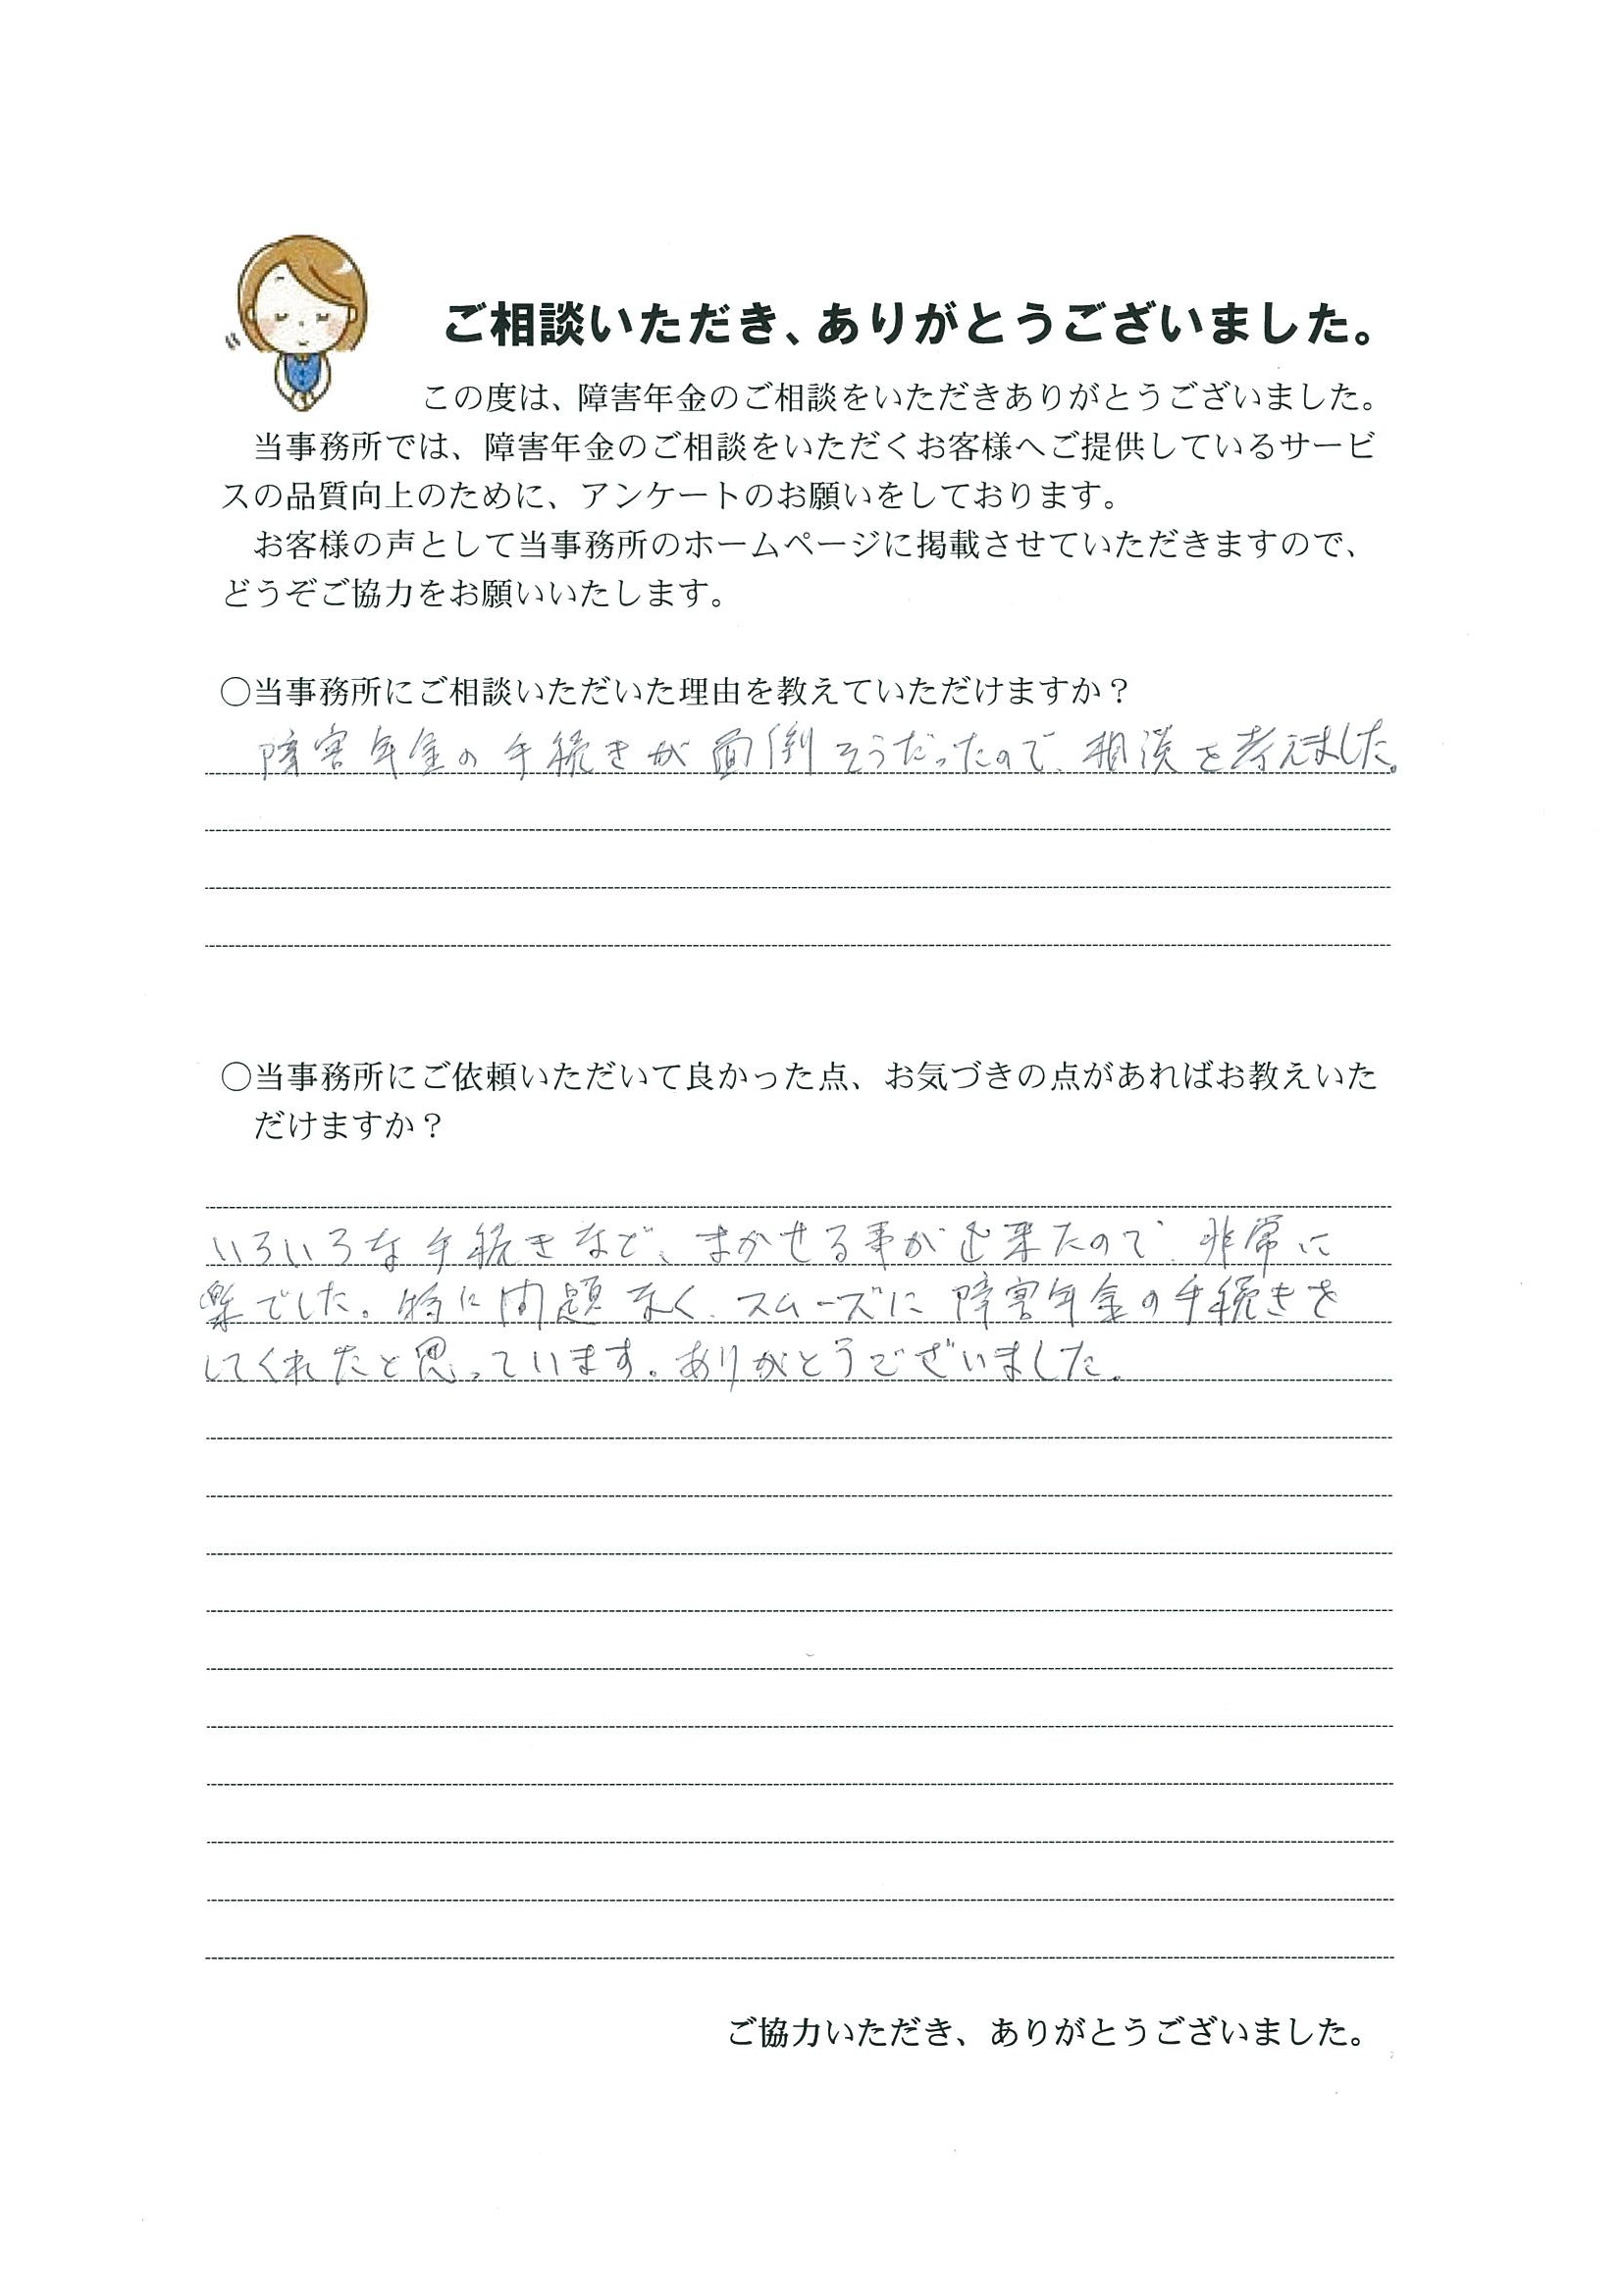 ご相談いただき、ありがとうございました。
この度は、障害年金のご相談をいただきありがとうございました。
当事務所では、障害年金のご相談をいただくお客様へご提供しているサービ
スの品質向上のために、アンケートのお願いをしております。
お客様の声として当事務所のホームページに掲載させていただきますので、
どうぞご協力をお願いいたします。
○当事務所にご相談いただいた理由を教えていただけますか？
障害年金の手続きが面倒そうだったので、相談を考えました。
○当事務所にご依頼いただいて良かった点、お気づきの点があればお教えいた
だけますか？
いろいろな手続きなど、まかせる事が出来たので、非常に
楽でした。特に問題なく、スムーズに障害年金の手続きを
してくれたと思っています。ありがとうございました。
ご協力いただき、ありがとうございました。